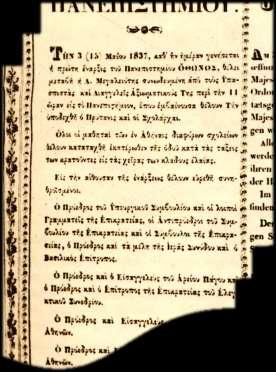 ΠΑΝΕΠΙΣΤΗΜΙΟΥ.
Τὴν 3 (15) Μαΐου 1837, καθ' ἣν ἡμέραν γενήσεται
ἡ πρώτη ἔναρξις τοῦ Πανεπιστημίου ΟΘΩΝΟΣ, θέλει
μεταβῆ ἡ Α. Μεγαλειότης συνωδευμένη ἀπὸ τοὺς Ὑπα-
σπιστὰς καὶ Αὐλικοὺς Ἀξιωματικούς Της περὶ τὴν 11
ὥραν εἰς τὸ Πανεπιστήμιον, ὅπου ἐμβαίνουσα θέλουν Τὴν
ὑποδεχθῆ ὁ Πρύτανις καὶ οἱ Σχολάρχαι.
Ὅλοι οἱ μαθηταὶ τῶν ἐν Ἀθήναις διαφόρων σχολείων
θέλουν καταταχθῆ ἑκατέρωθεν τῆς ὁδοῦ κατὰ τὰς τάξεις
των κρατοῦντες εἰς τὰς χεῖρας των κλάδους ἐλαίας.
Εἰς τὴν αἴθουσαν τῆς ἐνάρξεως θέλουν εὑρεθῆ συνη-
θροισμένοι.
Ὁ Πρόεδρος τοῦ Ὑπουργικοῦ Συμβουλίου καὶ οἱ λοιποὶ
Γραμματεῖς τῆς Ἐπικρατείας, οἱ Ἀντιπρόεδροι τοῦ Συμ-
βουλίου τῆς Ἐπικρατείας καὶ οἱ Σύμβουλοι τῆς Ἐπικρα-
τείας, ὁ Πρόεδρος καὶ τὰ μέλη τῆς Ἱερᾶς Συνόδου καὶ ὁ
Βασιλικὸς Ἐπίτροπος.
Ὁ Πρόεδρος καὶ ὁ Εἰσαγγελεὺς τοῦ Ἀρείου Πάγου κα
ὁ Πρόεδρος καὶ ὁ Ἐπίτροπος τῆς Ἐπικρατείας τοῦ Ἐλεγ
κτικοῦ Συνεδρίου.
Ὁ Πρόεδρος καὶ Εἰσαγγελεὺς
Ἀθηνῶν.
Ὁ Πρόεδρος καὶ
Ἀθηνῶν.